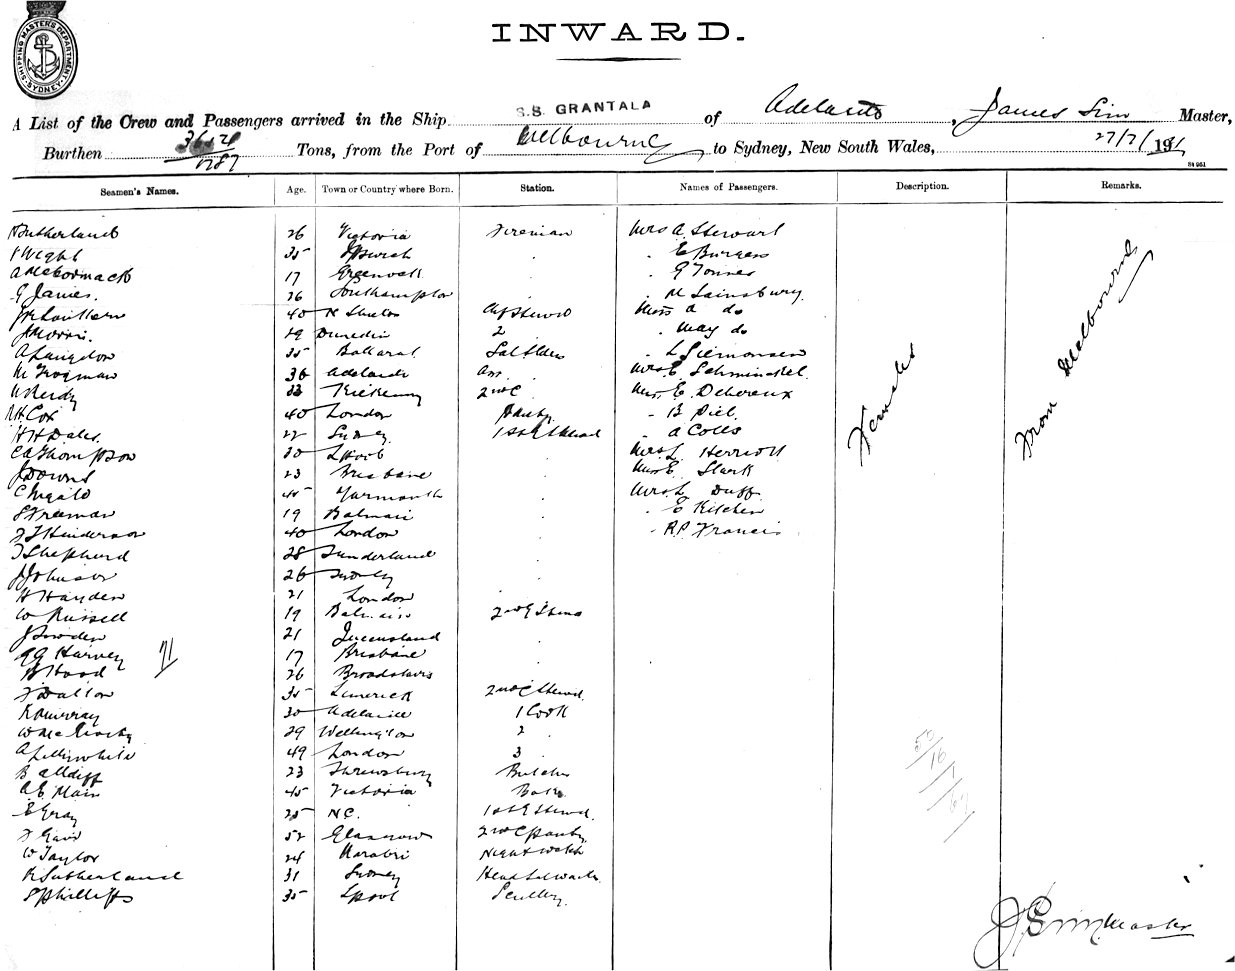 SHIPPING MASTER'S DEPARTMENT SYDNEY
INWARD.
A List of the Crew and Passengers arrived in the Ship S.S. GRANTALA of Adelaide, James Sim Master,
Burthen Tons, from the Port of Melbourne to Sydney, New South Wales, 27/7/1911
Seamen's Names. Age. Town or Country where Born. Station. Names of Passengers. Description. Remarks.
Sutherland 26 Victoria Fireman Mrs A Stewart
Wright 35 Ipswich . . E Burgess
A McCormack 17 Greenock . . G
G James. 26 Southampton . . M Sainsbury
40 N Shields Miss A do
J Morris. 19 Dunedin 2 . May do
A Langdon 35 Ballarat . L Siemonsen
M 36 Adelaide Mrs E
33 2nd C Miss E. Devereux
H Cox 40 London Pantry . B Piel
H H Dales. 22 Sydney 1st Stewd . A Coles
C A Thompson 30 L'pool . Mrs L Herriott
J Downs 23 Brisbane . Miss E.
C 45 Yarmouth . Mrs L Duff
S Freeman 19 Balmain . . E Kitchen
F J Henderson 40 London . . R.P. Francis
T Shepherd 28 Sunderland .
J Johnson 26 Sydney .
H Hayden 21 London .
W Russell 19 Balmain 2nd
J Snowden 21 Queensland .
G G Harvey 17 Brisbane .
B Hood 26 Broadstairs .
F Dalton 35 Limerick 2nd C Stewd.
R Murray 30 Adelaide 1 Cook
W 29 Wellington 2 .
A Lillywhite 49 London 3 .
B Alldiff 23 Shrewsbury Butcher
A E Main 45 Victoria Baker
E Gray 25 N.C. 1st Stewd.
F Gair 52 Glasgow 2nd C Pantry
W Taylor 24 Narabri Nightwatch
R Sutherland 31 Sydney
S Phillips 35 L'pool Scullery.
Females
From Melbourne
71
50/16/1/67
J Sim Master